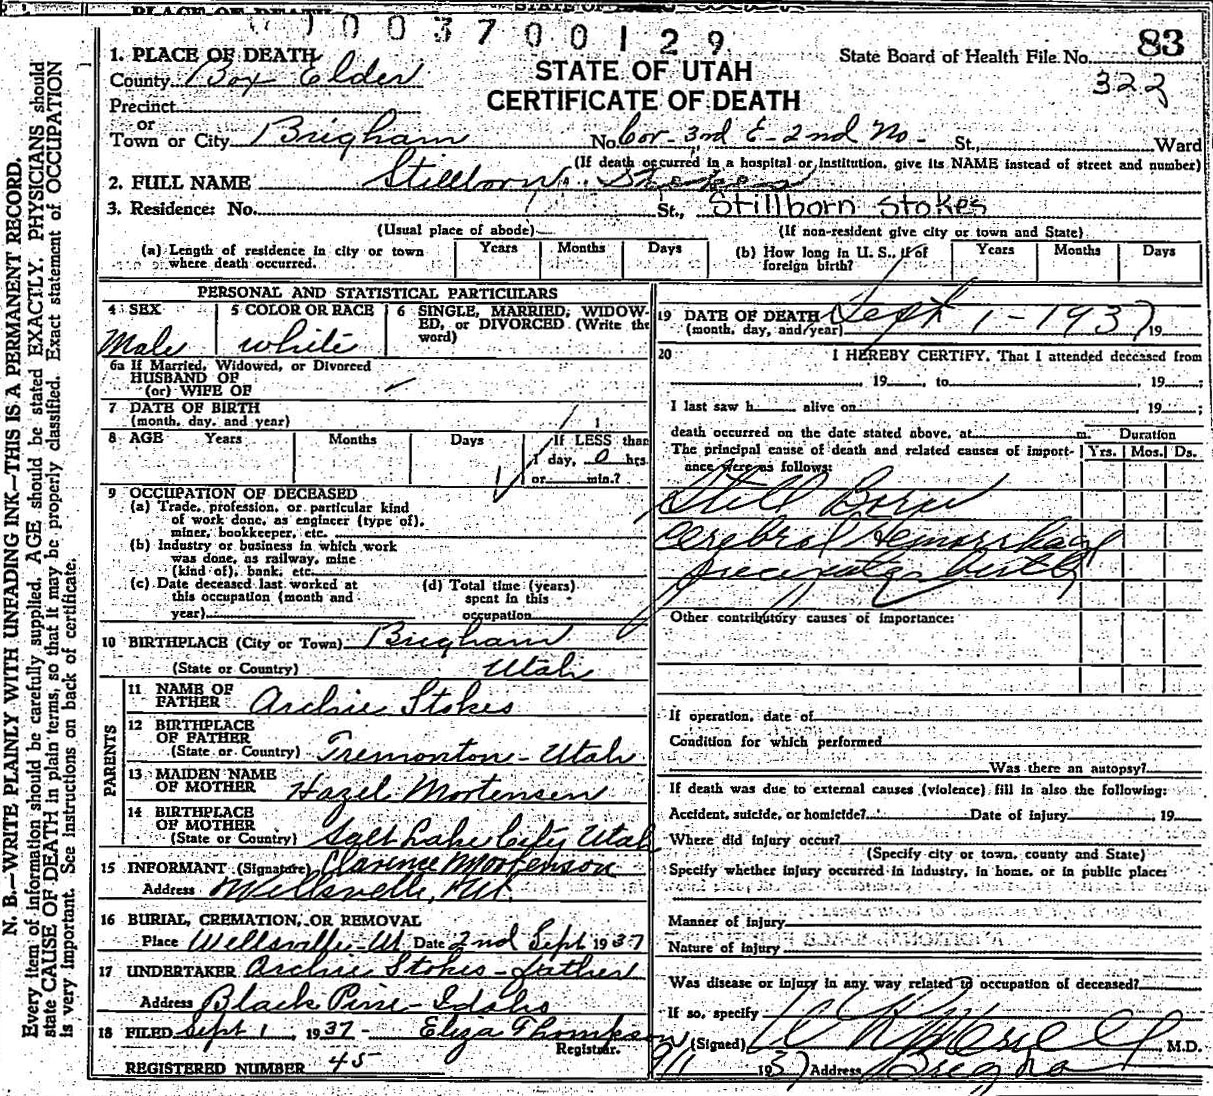 PLACE OF DEATH STATE OF
003700129
83
State Board of Health File No.
322
STATE OF UTAH
CERTIFICATE OF DEATH
1. PLACE OF DEATH
County Box Elder
Precinct
or
Town or City Brigham No. Cor-3rd E-2nd No- St., Ward
(If death occurred in a hospital or institution, give its NAME instead of street and number)
2. FULL NAME Stillborn Stokes
3. Residence: No. St., Stillborn Stokes
(Usual place of abode) (If non-resident give city or town and State)
(a) Length of residence in city or town where death occurred. Years Months Days (b) How long in U. S., if of foreign birth? Years Months Days
PERSONAL AND STATISTICAL PARTICULARS
4 SEX Male
5 COLOR OR RACE white
6 SINGLE, MARRIED, WIDOWED, or DIVORCED (Write the word)
6a If Married, Widowed, or Divorced
HUSBAND OF
(or) WIFE OF
7 DATE OF BIRTH
(month, day, and year)
8 AGE Years Months Days If LESS than
1 day, 0 hrs.
or min.?
9 OCCUPATION OF DECEASED
(a) Trade, profession, or particular kind
of work done, as engineer (type of),
miner, bookkeeper, etc.
(b) Industry or business in which work
was done, as railway, mine
(kind of), bank, etc.
(c) Date deceased last worked at
this occupation (month and
year)
(d) Total time (years)
spent in this
occupation
10 BIRTHPLACE (City or Town) Brigham
(State or Country) Utah
PARENTS
11 NAME OF FATHER Archie Stokes
12 BIRTHPLACE OF FATHER
(State or Country) Tremonton-Utah
13 MAIDEN NAME OF MOTHER Hazel Mortensen
14 BIRTHPLACE OF MOTHER
(State or Country) Salt Lake City Utah
15 INFORMANT (Signature) Clarence Mortenson
Address Wellsville, Ut.
16 BURIAL, CREMATION, OR REMOVAL
Place Wellsville-Ut Date 2nd Sept 1937
17 UNDERTAKER Archie Stokes-father
Address Black Pine-Idaho
18 FILED Sept 1, 1937- Eliza G Thompson
Registrar.
REGISTERED NUMBER 45
19 DATE OF DEATH Sept 1-1937 19
(month, day, and year)
20 I HEREBY CERTIFY, That I attended deceased from
, 19 , to , 19 ;
I last saw h alive on , 19 ;
death occurred on the date stated above, at m. Duration
The principal cause of death and related causes of importance were as follows: Yrs. Mos. Ds.
Still Born
Cerebral Hemorrhage
birth
Other contributory causes of importance:
If operation, date of
Condition for which performed
Was there an autopsy?
If death was due to external causes (violence) fill in also the following:
Accident, suicide, or homicide? Date of injury , 19
Where did injury occur?
(Specify city or town, county and State)
Specify whether injury occurred in industry, in home, or in public place:
Manner of injury
Nature of injury
Was disease or injury in any way related to occupation of deceased?
If so, specify
(Signed) M.D.
9/1 1937 Address
N. B.—WRITE PLAINLY WITH UNFADING INK—THIS IS A PERMANENT RECORD.
Every item of information should be carefully supplied. AGE should be stated EXACTLY. PHYSICIANS should
state CAUSE OF DEATH in plain terms, so that it may be properly classified. Exact statement of OCCUPATION
is very important. See instructions on back of certificate.